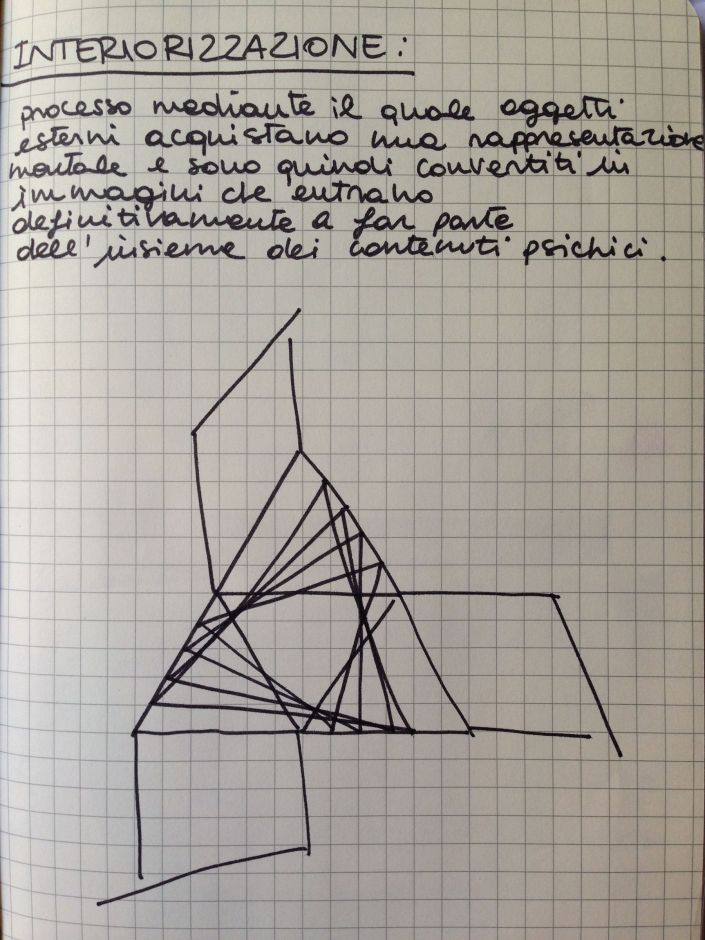 INTERIORIZZAZIONE:
processo mediante il quale oggetti
esterni acquistano una rappresentazione
mentale e sono quindi convertiti in
immagini che entrano
definitivamente a far parte
dell'insieme dei contenuti psichici.